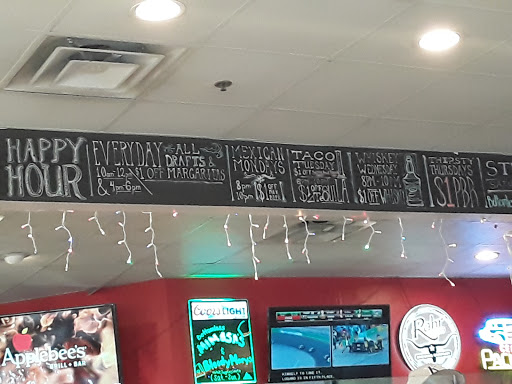 HAPPY
HOUR
EVERYDAY
ALL
DRAFTS &
10am-12
$1 OFF MARGARITAS
& 4pm-6pm
MEXICAN
MONDAYS
8pm
10pm
$1
TACO
TUESDAY
$1 OFF
$2 TEQUILA
WHISKEY
WEDNESDAY
8PM-10PM
$1 OFF WHISKEY
THIRSTY
THURSDAYS
$1 PBR
ST
Applebee's
GRILL + BAR
Coors LIGHT
Bottomless
MIMOSAS
&
Bloody Marys
(Sat-Sun)
HIMSELF TO COME IT.
LOGANO IS IN FIFTH PLACE.
Ruby